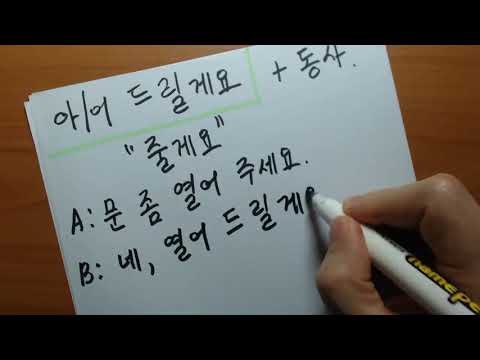 아/어 드릴게요 + 동사.
"줄게요"
A: 문 좀 열어 주세요.
B: 네, 열어 드릴게
namepe